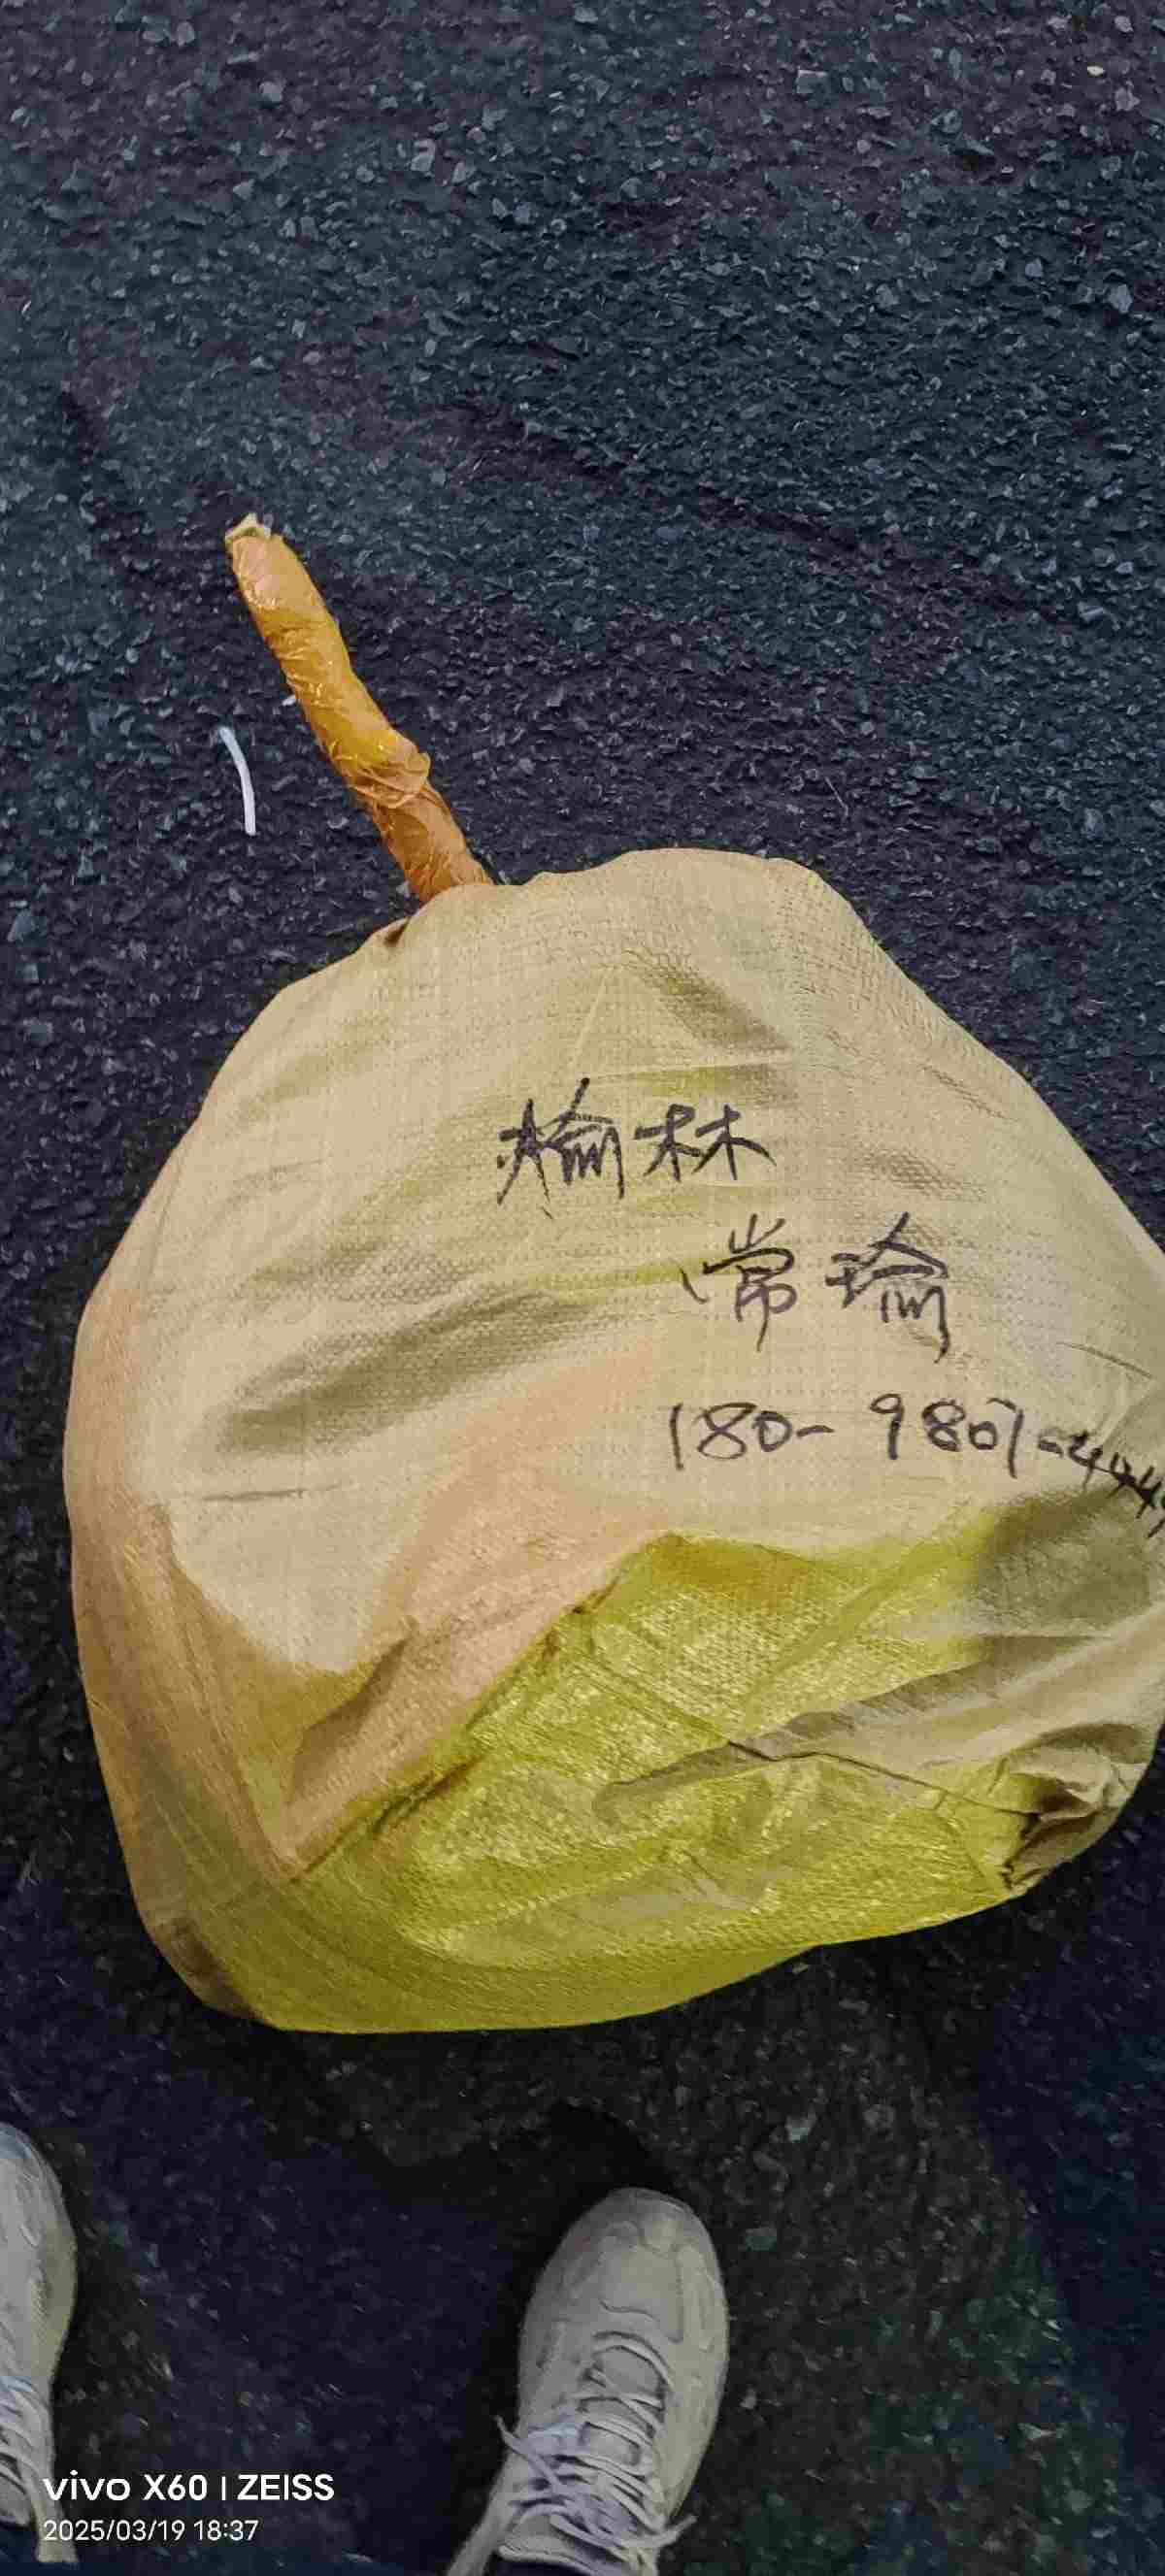 榆林
常瑜
180-9801-444
vivo X60 | ZEISS
2025/03/19 18:37